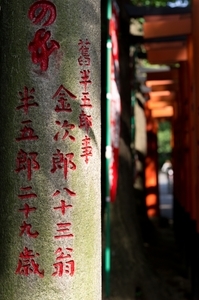 舊半五郎事
金次郎八十三翁
半五郎二十九歳